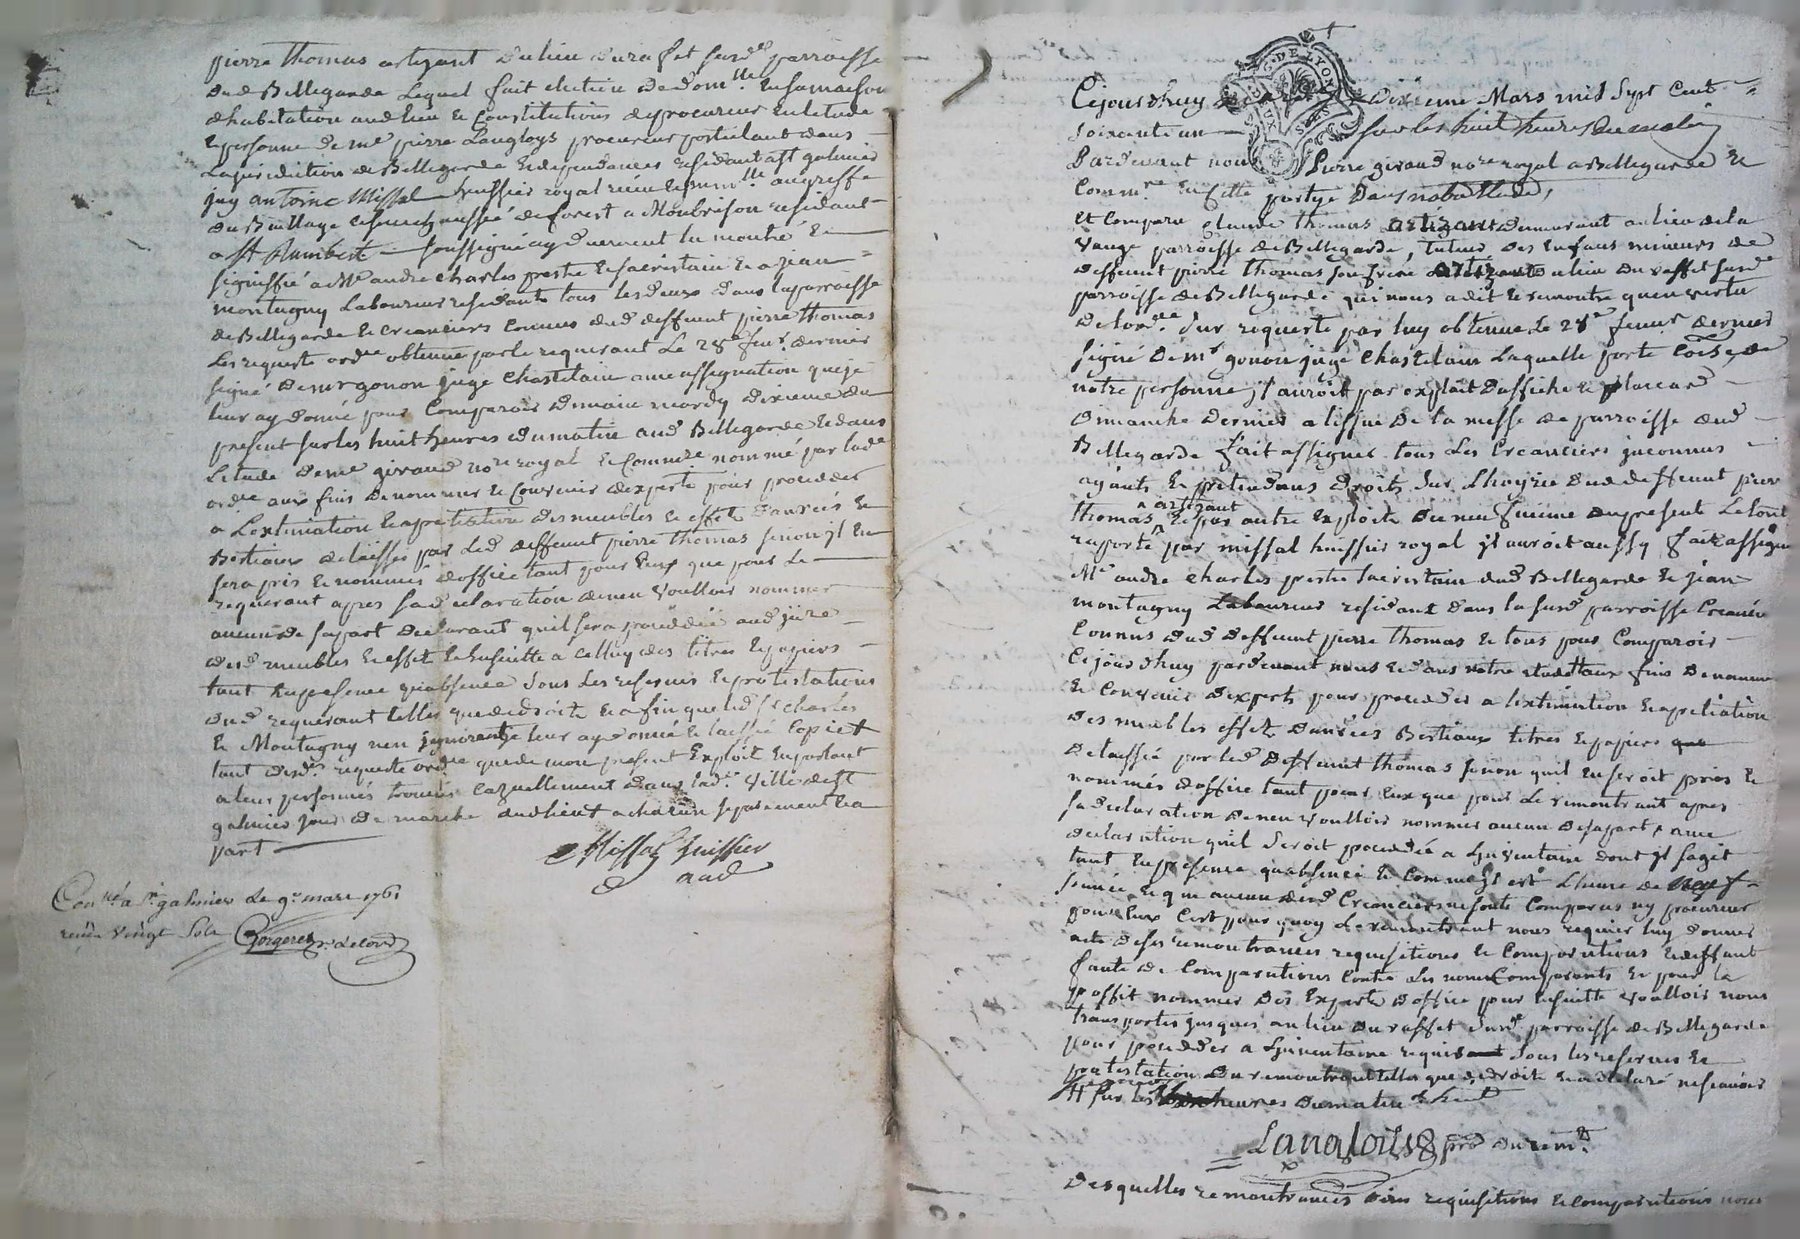 pierre Thomas artizant du lieu du raffet susd.e parroisse
dud Bellegarde Lequel fait election de dom.lle en sa maison
dhabitation aud lieu et constitutions de procureur en letude
et personne de me pierre Langloys procureur postulant dans
La jurisdiction de Bellegarde et dependances residant a st galmier
jay antoine Missal huissier royal receu et imm.lle au greffe
du Bailliage et senechaussée de forest a Monbrison residant
a st Rambert soussigné ay duement lu montré et
signiffié a Me andre charles prestre et sacristain et a jean
montagny Laboureur residants tous les deux dans la parroisse
de Bellegarde et creanciers connus dud deffunt pierre thomas
Les requeste ord.ce obtenue par le requerant Le 28e fevr. dernier
signé de mr gonon juge chastelain avec assignation que je
leur ay donné pour comparoir demain mardy dixieme du
present sur les huit heures du matin aud Bellegarde et dans
Letude de me giraud no.re royal et commre nommé par lad.e
ord.ce aux fins de nommer et convenir dexperts pour proceder
a Lextimation et apretiation des meubles et effets danrées et
Bestiaux delaissés par Led deffunt pierre thomas sinon jl en
sera pris et nommés doffice tant pour Eux que pour Le
requerant apres sa declaration de nen voulloir nommer
aucun de sa part declarant quil sera procédé aud jnre
desd meubles et effets et ensuitte a celluy des titres et papiers
tant en presence quabsence sous Les reserves et protestations
dud requerant telles que de droit et a fin que led sr charles
et Montagny nen jgnorent je leur ay donné et laissé copie
tant desd.e requeste ord.ce que de mon present Exploit en parlant
a leur personnes trouvés cazuellement dans lad.e ville de st
galmier jour de marché dud lieu a chacun separement et a
part
Missal huissier
aud
Con.lé a St galmier Le 9e mars 1761
receu vingt sols
Cejourdhuy dixieme Mars mil Sept Cent
soixante un sur les huit heures du matin
Pardevant nous Pierre giraud no.re royal a Bellegarde et
Comm.re en cette partye
Et comparu claude thomas artizant demeurant au lieu de la
vauze parroisse de Bellegarde, tuteur des Enfans mineurs de
deffunt pierre thomas son frere artizant du lieu du raffet susd.e
parroisse de Bellegarde qui nous a dit et remontré quen vertu
de lord.ce sur requeste par luy obtenue Le 28e fevrier dernier
signé de mr gonon juge chastelain Laquelle porte
notre personne, jl auroit par exploit daffiche et placard
dimanche dernier a lissue de la messe de parroisse dud
Bellegarde fait assigner tous Les Creanciers jnconnus
ayants et pretendans droits sur Lhoyrie dud deffunt pierre
thomas artizant et par autre exploit du neufvieme du present Le tout
raporté par missal huissier royal jl auroit aussy fait assigner
Me andre charles prestre sacristain dud Bellegarde et jean
montagny Laboureur residant dans la susd parroisse Creanciers
Connus dud deffunt pierre thomas et tous pour Comparoir
Cejourdhuy pardevant nous et dans notre etude aux fins de nommer
et convenir dexperts pour proceder a lextimation et apretiation
des meubles effets danrées Bestiaux titres et papiers
delaissé par led deffunt thomas sinon quil en seroit pris et
nommés doffice tant pour Eux que pour Le remontrant apres
sa declaration de nen voulloir nommer aucun de sa part, avec
declaration quil seroit procedé a Linventaire dont jl sagit
tant en presence quabsence et comme jl est Lheure de neuf
sonnée et que aucun desd Creanciers ne sont Comparus ny procureur
pour Eux Cest pourquoy Le remontrant nous requier luy donner
acte de ses remontrances requisitions et Comparutions et deffaut
faute de Comparutions contre les nons Comparants et pour le
proffit nommer des Experts doffice pour ensuitte voulloir nous
transporter jusques au lieu du raffet susd.e parroisse de Bellegarde
pour proceder a Linventaire requis sous les reserves et
protestation du remontrant telles que de droit et a declaré ne scavoir
sur les heures du matin
Langlois pr du rem.t
Desquelles remontrances dires requisitions et comparutions nous